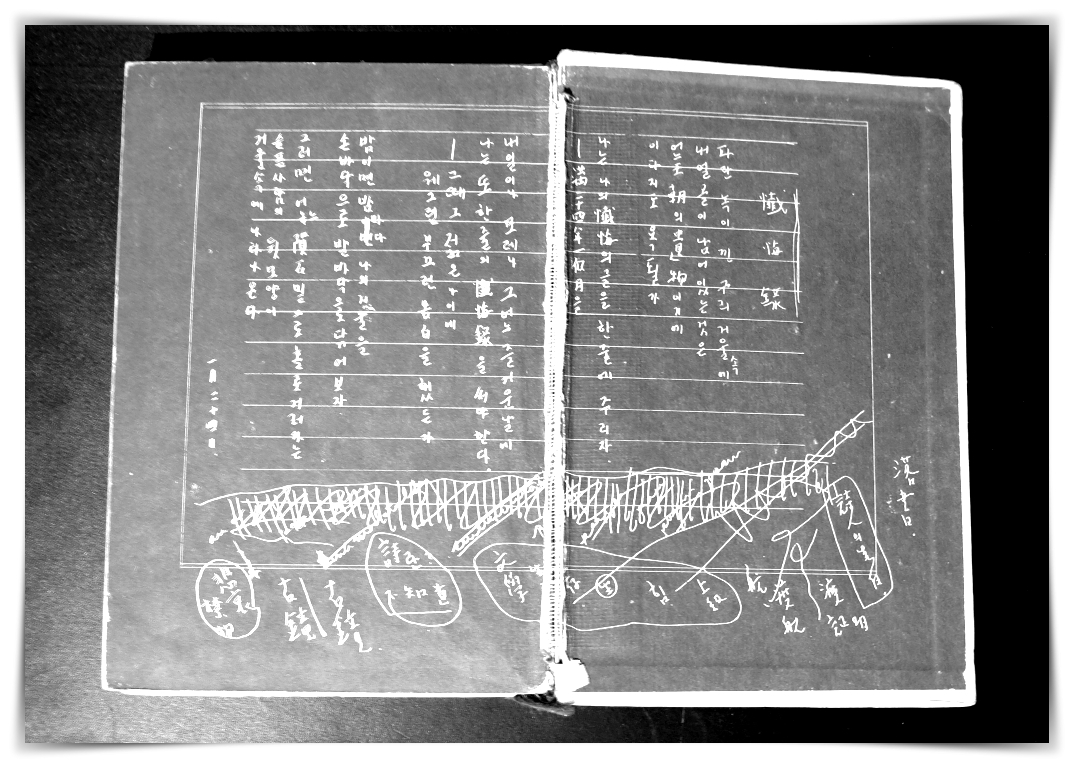 懺悔錄
파란 녹이 낀 구리 거울 속에
내 얼골이 남어 있는 것은
어느 王朝의 遺物이기에
이다지도 욕될가
나는 나의 懺悔의 글을 한줄에 주리자
— 滿二十四年一個月을
내일이나 모레나 그 어느 즐거운 날에
나는 또 한줄의 懺悔錄을 써야 한다.
— 그때 그 젊은 나이에
웨 그런 부끄런 고백을 했든가
밤이면 밤마다 나의 거울을
손바닥으로 발바닥으로 닦어 보자
그러면 어느 隕石밑으로 홀로 거러가는
슬픈 사람의 뒷모양이
거울속에 나타나온다
一月二十四日.
詩人의
渡航
渡航
證明
힘
生
文學
詩란
不知道
古鏡
古鏡
悲哀